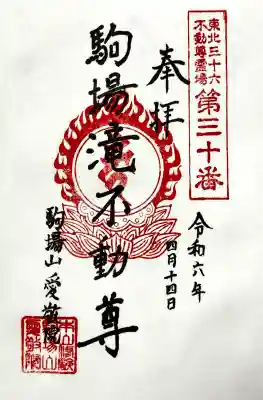 東北三十六
不動尊霊場
第三十番
奉拝
令和六年
四月十四日
駒場滝不動尊
駒場山 愛敬院